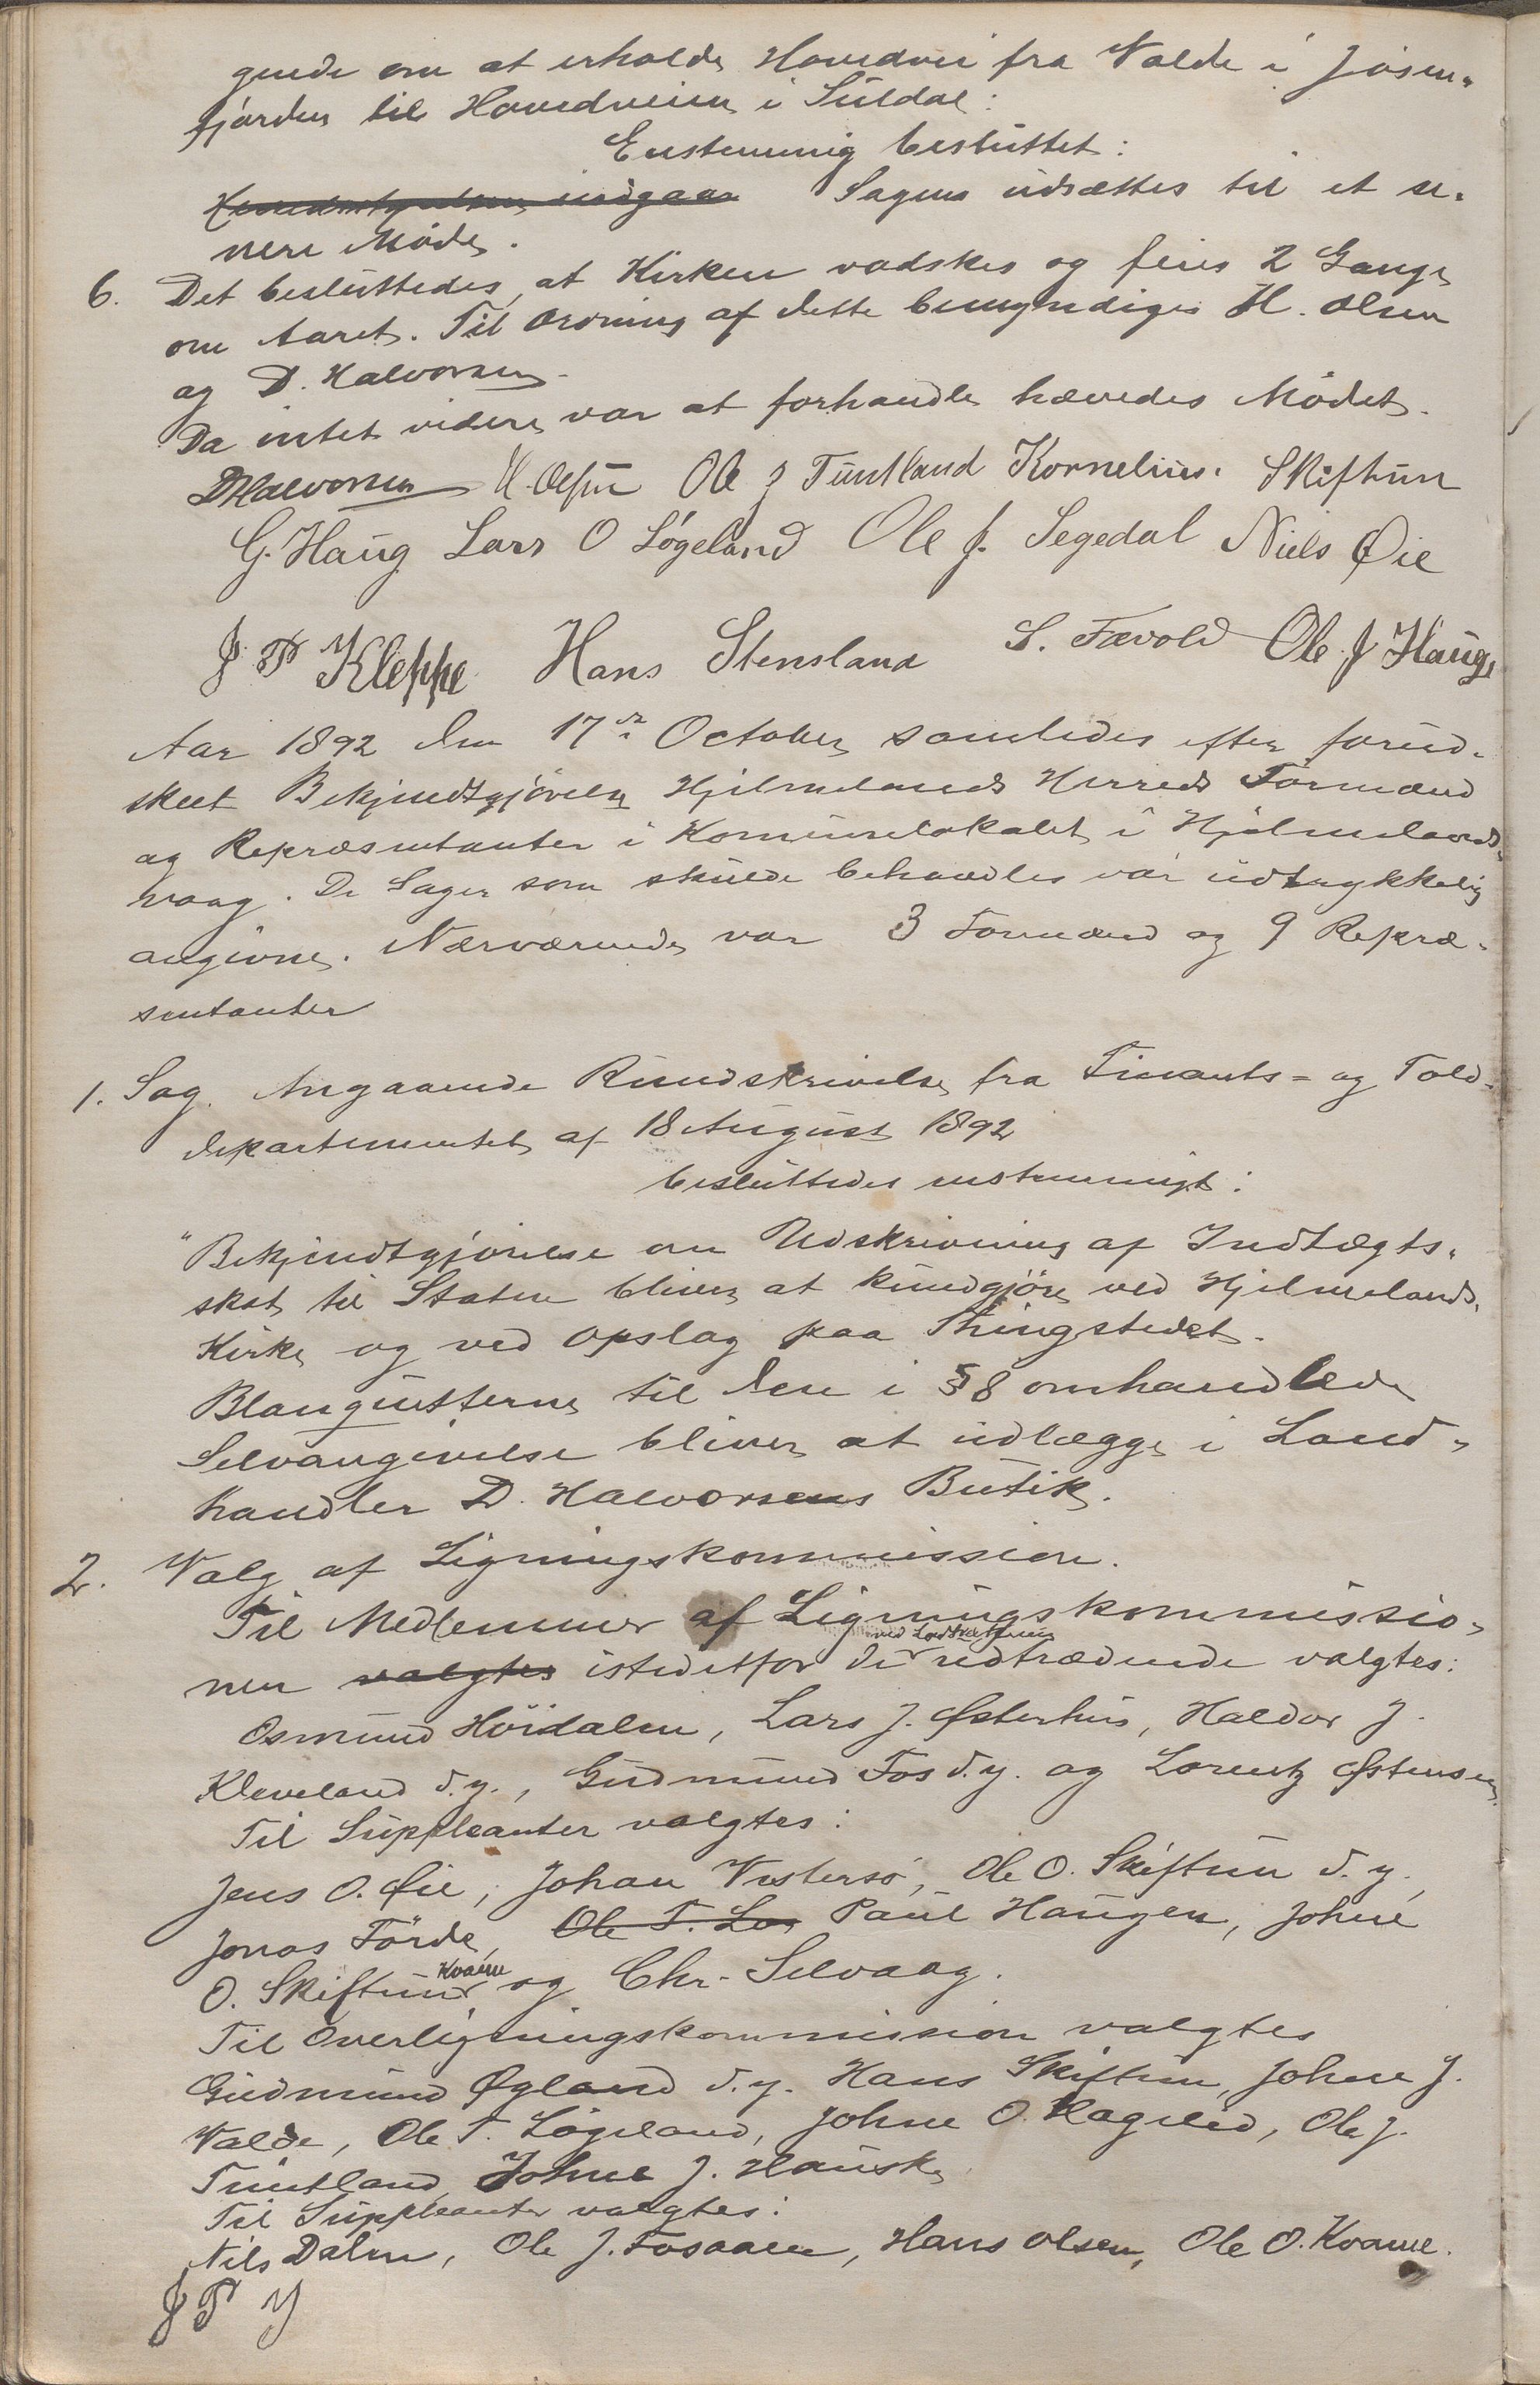 gende om at erholde Hovedvei fra Valde i Jøsen-
fjorden til Hovedveien i Suldal:
Enstemmig besluttet:
Sagen udsættes til et se-
nere Møde.
6. Det besluttedes, at Kirken vadskes og feies 2 Gange
om Aaret. Til Ordning af dette bemyndiges H. Olsen
og D. Halvorsen.
Da intet videre var at forhandle hævedes Mødet.
D Halvorsen H. Olsen Ole J Tuntland Kornelius Skiftun
G. Haug Lars O Løgeland Ole J. Segedal Niels Øie
J P Kleppe Hans Stensland S. Fævold Ole J Hauge
Aar 1892 den 17de October samledes efter forud-
skeet Bekjendtgjørelse Hjelmelands Herreds Formænd
og Repræsentanter i Kommunelokalet i Hjelmelands-
vaag. De Sager som skulde behandles var udtrykkelig
angivne. Nærværende var 3 Formænd og 9 Repræ-
sentanter
1. Sag. Angaaende Rundskrivelse fra Finants- og Told-
departementet af 18 August 1892
besluttedes enstemmigt:
"Bekjendtgjørelse om Udskrivning af Indtægts-
skat til Staten bliver at kundgjøre ved Hjelmelands
Kirke og ved Opslag paa Thingstedet.
Blanquetterne til den i § 8 omhandlede
Selvangivelse bliver at udlægge i Land-
handler D. Halvorsens Butik.
2. Valg af Ligningskommission.
Til Medlemmer af Ligningskommissio-
ved Lodtrækning
nen valgtes istedetfor de udtrædende valgtes:
Osmund Høidalen, Lars J. Østerhus, Haldor J.
Kleveland d.y., Gudmund Fos d.y. og Lorentz Østensen.
Til Suppleanter valgtes:
Jens O. Øie, Johan Vestersø, Ole O. Skiftun d.y.,
Jonas Førde, Ole T. Paul Haugen, Johne
Kvame
O. Skiftun og Chr. Selvaag.
Til Overligningskommission valgtes
Gudmund Øgland d.y. Hans Skiftun, Johne J.
Valde, Ole T. Løgeland, Johne O. Hagelid, Ole J.
Tuntland, Johne J. Hauske
Til Suppleanter valgtes:
Nils Dalen, Ole J. Fosaaen, Hans Olsen, Ole O. Kvame.
J P